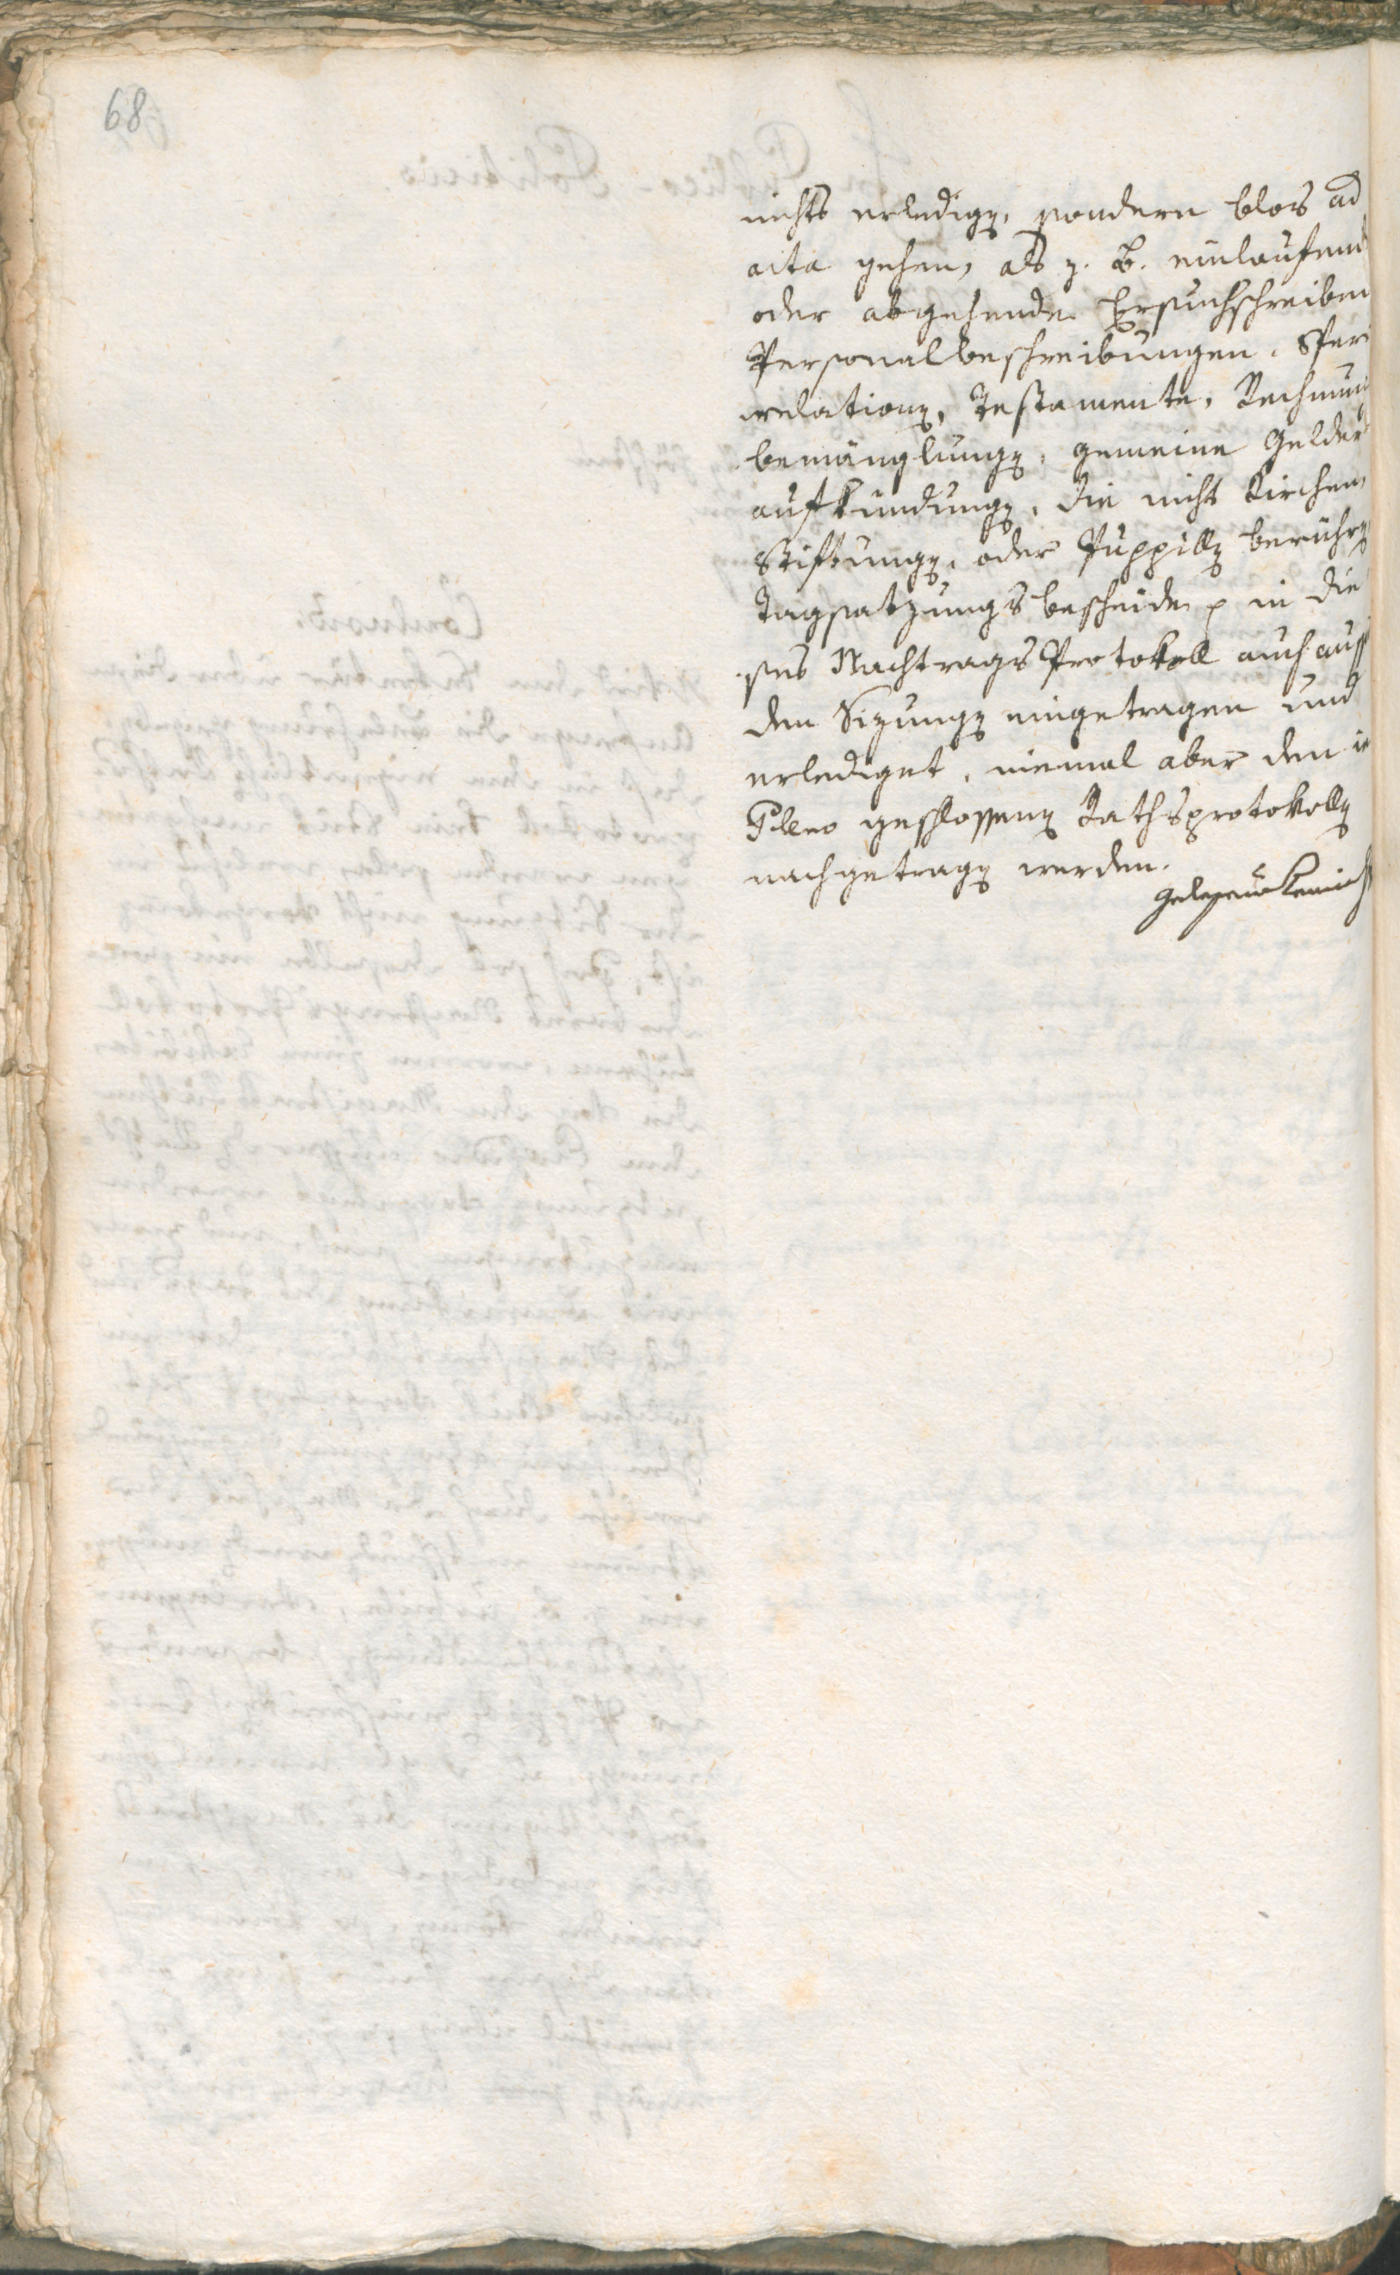 68
nichts erledigen, sondern blos ad
acta gehen, als z. B. einlaufend
oder abgehende Ersuchschreiben
Personalbeschreibungen, Sper
relationen, Testamente, Rechnung
bemänglungen, gemeine Gelder
aufkündungen, die nicht Kirchen,
Stiftungen, oder Puppillen berühren
Tagsatzungsbescheide in die
ses Nachtrags Protokoll auch ausser
den Sizungen eingetragen und
erlediget, niemal aber den in
Pleno geschlossenen Rathsprotokollen
nachgetragen werden.